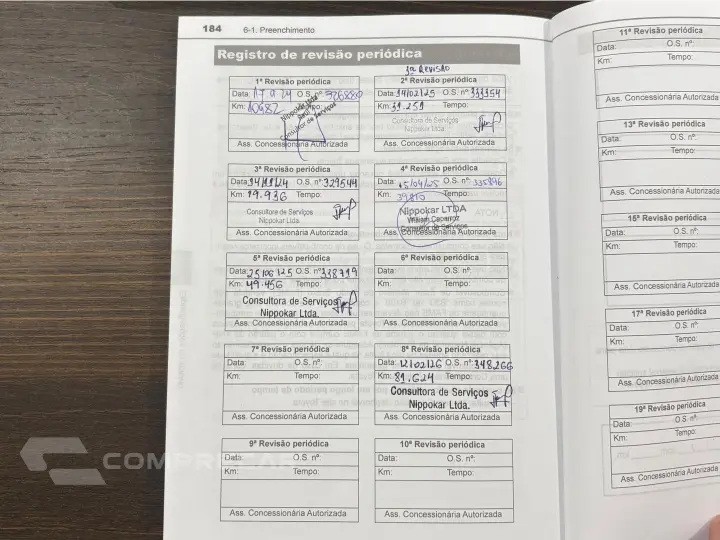 184 6-1. Preenchimento
Registro de revisão periódica
3ª REVISÃO
1ª Revisão periódica
Data: 17 9 24 O.S. nº 326880
Km: 10682 Tempo:
Nippokar Ltda
Consultor de Serviços
Ass. Concessionária Autorizada
2ª Revisão periódica
Data: 14/02/25 O.S. nº: 333354
Km: 31.251 Tempo:
Consultora de Serviços
Nippokar Ltda.
Ass. Concessionária Autorizada
3ª Revisão periódica
Data: 14/11/24 O.S. nº 329544
Km: 19.936 Tempo:
Consultora de Serviços
Nippokar Ltda.
Ass. Concessionária Autorizada
4ª Revisão periódica
Data: 15/04/25 O.S. nº: 335896
Km: 39815 Tempo:
Nippokar LTDA
Consultor de Serviços
Ass. Concessionária Autorizada
5ª Revisão periódica
Data: 25/06/25 O.S. nº 338719
Km: 49.456 Tempo:
Consultora de Serviços
Nippokar Ltda.
Ass. Concessionária Autorizada
6ª Revisão periódica
Data: O.S. nº:
Km: Tempo:
Ass. Concessionária Autorizada
7ª Revisão periódica
Data: O.S. nº:
Km: Tempo:
Ass. Concessionária Autorizada
8ª Revisão periódica
Data: 12/02/26 O.S. nº: 348266
Km: 81.624 Tempo:
Consultora de Serviços
Nippokar Ltda.
Ass. Concessionária Autorizada
9ª Revisão periódica
Data: O.S. nº:
Km: Tempo:
Ass. Concessionária Autorizada
10ª Revisão periódica
Data: O.S. nº:
Km: Tempo:
Ass. Concessionária Autorizada
11ª Revisão periódica
Data: O.S. nº:
Km: Tempo:
Ass. Concessionária Autorizada
13ª Revisão periódica
Data: O.S. nº:
Km: Tempo:
Ass. Concessionária Autorizada
15ª Revisão periódica
Data: O.S. nº:
Km: Tempo:
Ass. Concessionária Autorizada
17ª Revisão periódica
Data: O.S. nº:
Km: Tempo:
Ass. Concessionária Autorizada
19ª Revisão periódica
Data: O.S. nº:
Km: Tempo:
Ass. Concessionária Autorizada